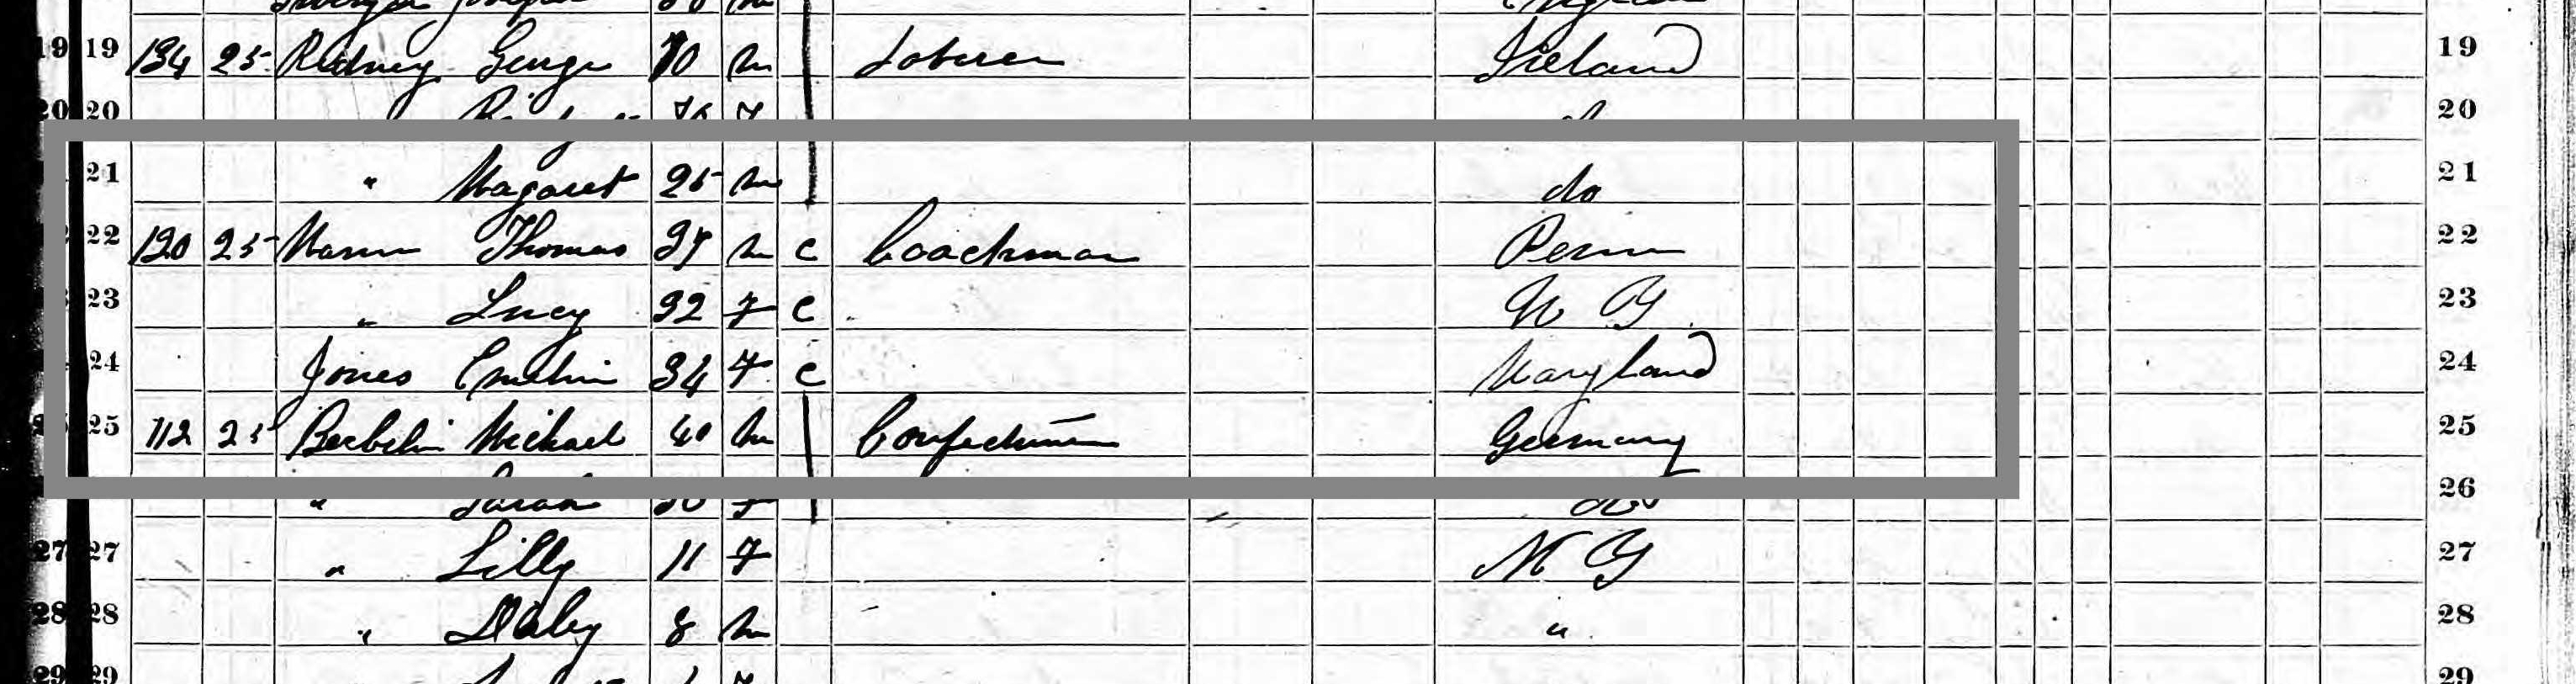 19 19 134 25 Ridney George 70 m Laborer Ireland 19
20 20 76 f 20
21 " Magaret 25 m do 21
22 120 25 Thomas m c Coachman Penn 22
23 " Lucy 32 f c N Y 23
24 Jones 34 f c Maryland 24
25 112 25 Michael 40 m Germany 25
" Sarah 30 f do 26
27 27 " Lilly 11 f N Y 27
28 28 " 8 m " 28
29 29 29